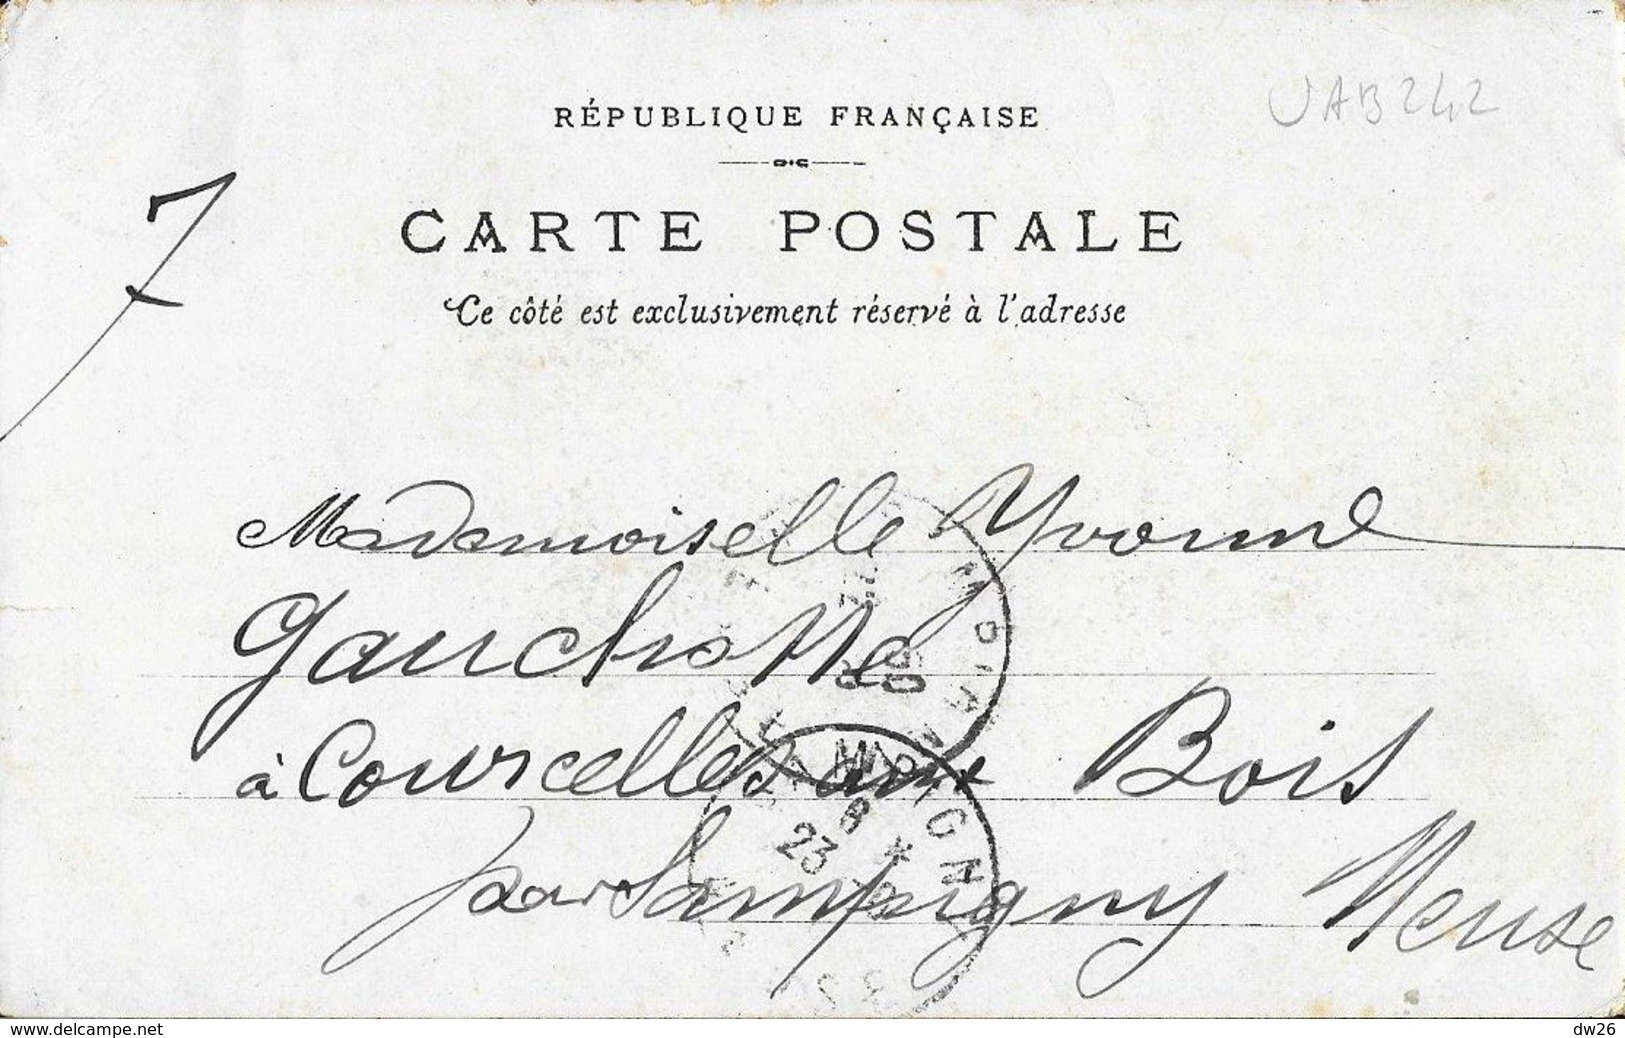 UAB242
RÉPUBLIQUE FRANÇAISE
CARTE POSTALE
Ce côté est exclusivement réservé à l'adresse
7
Mademoiselle Yvonne
Gauchotte
à Courcelles aux Bois
par Sampigny Meuse
23
www.delcampe.net
dw26